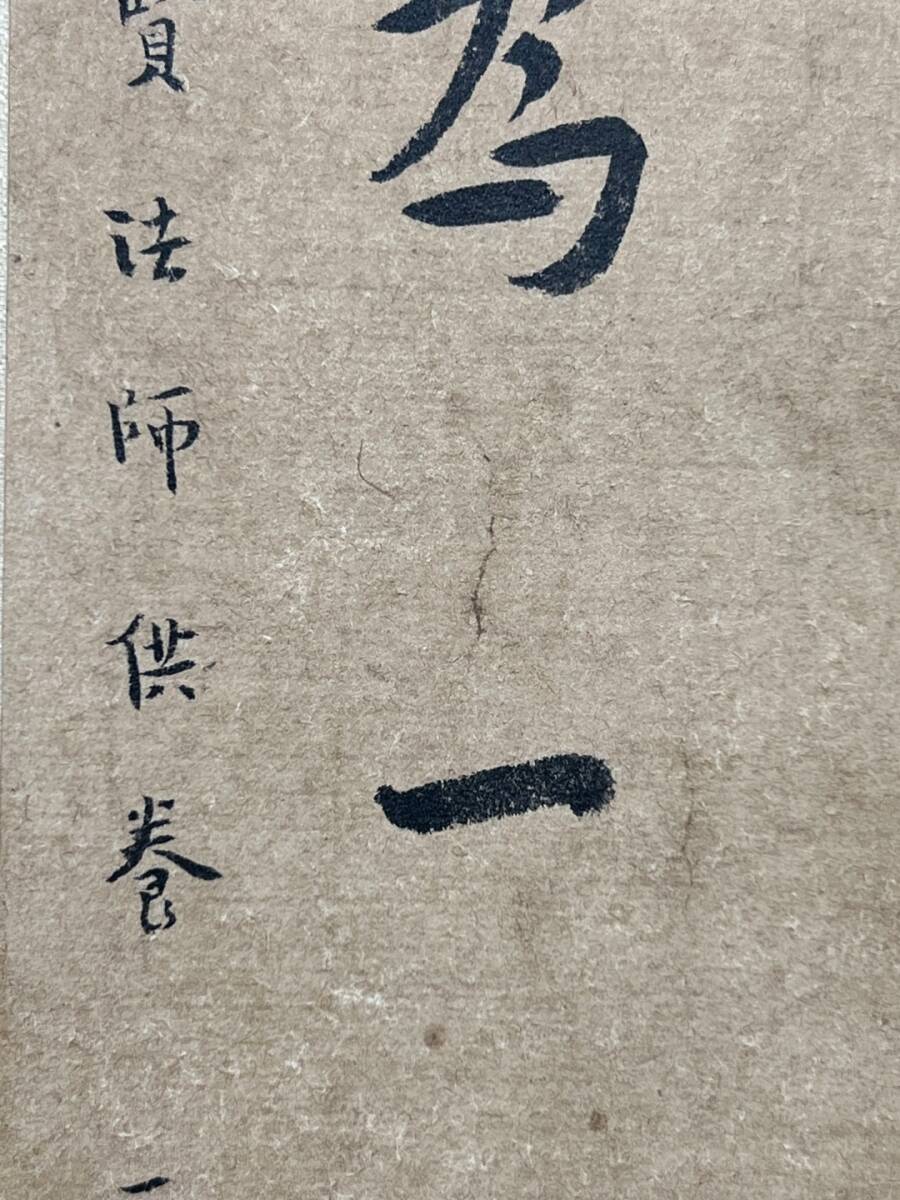 為一
賢法師供養一